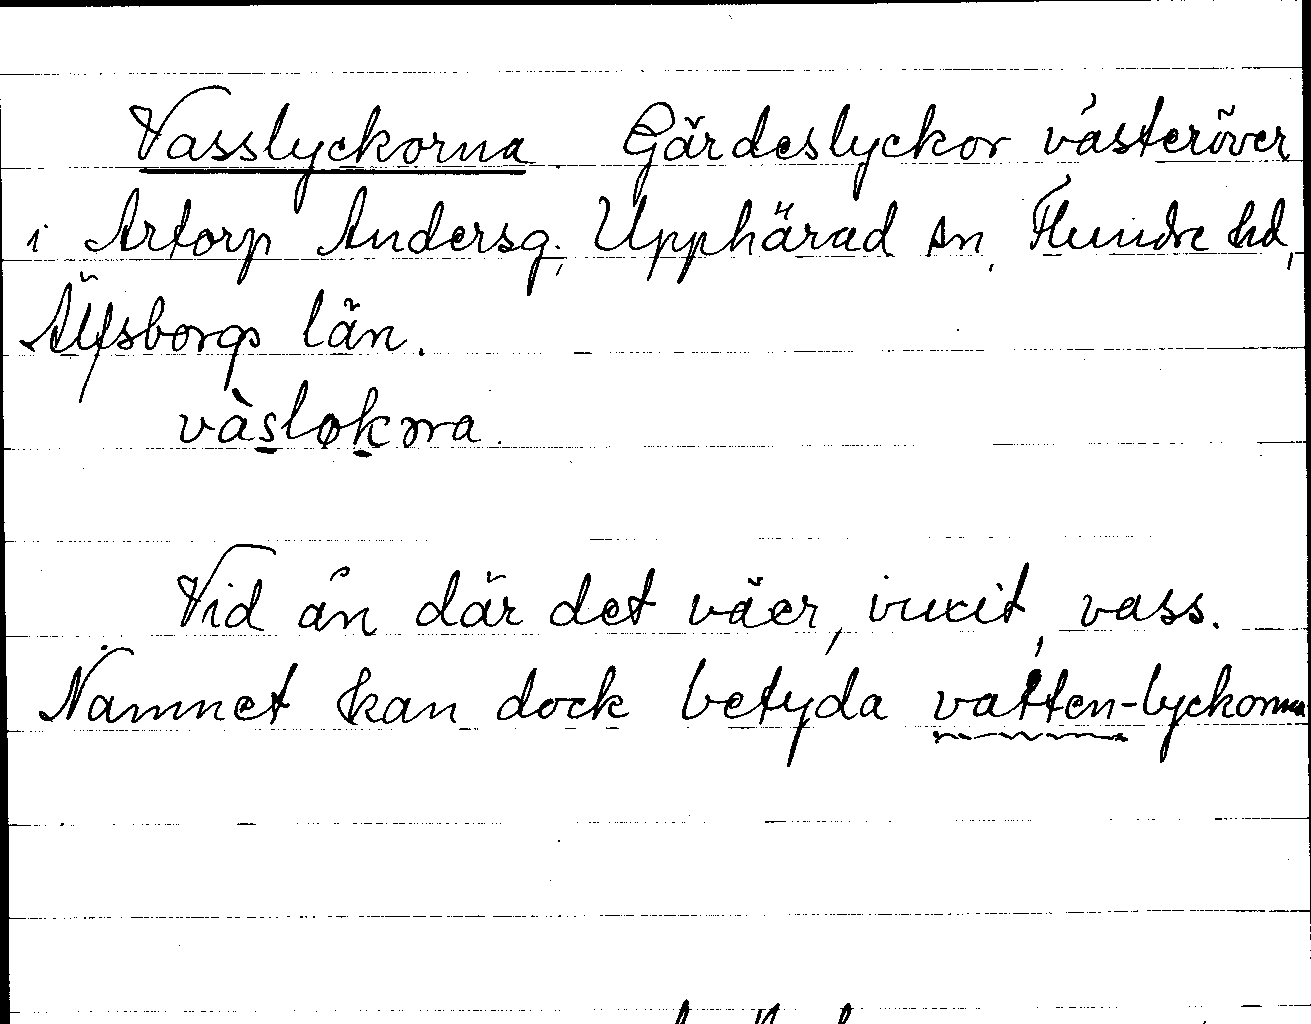 Vasslyckorna. Gärdeslyckor västeröver
i Artorp Andersg., Upphärad sn, Flundre hd,
Älfsborgs län.
vàsløkɷra.
Vid ån där det växer, vuxit, vass.
Namnet kan dock betyda vatten-lyckorna